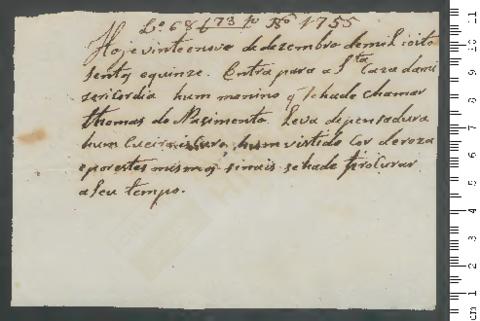 Lº 68 f 173 v Nº 1755
Hoje vinte enove de dezembro demil eoito
sentos equinze. Entra para a Sta Caza dami
zericordia hum menino q se hade chamar
thomas do Nasimento Leva dependadura
hum Cueiro escuro, hum vistido Cor deroza
eporestes mismos sinais sehade percurar
aseu tempo.